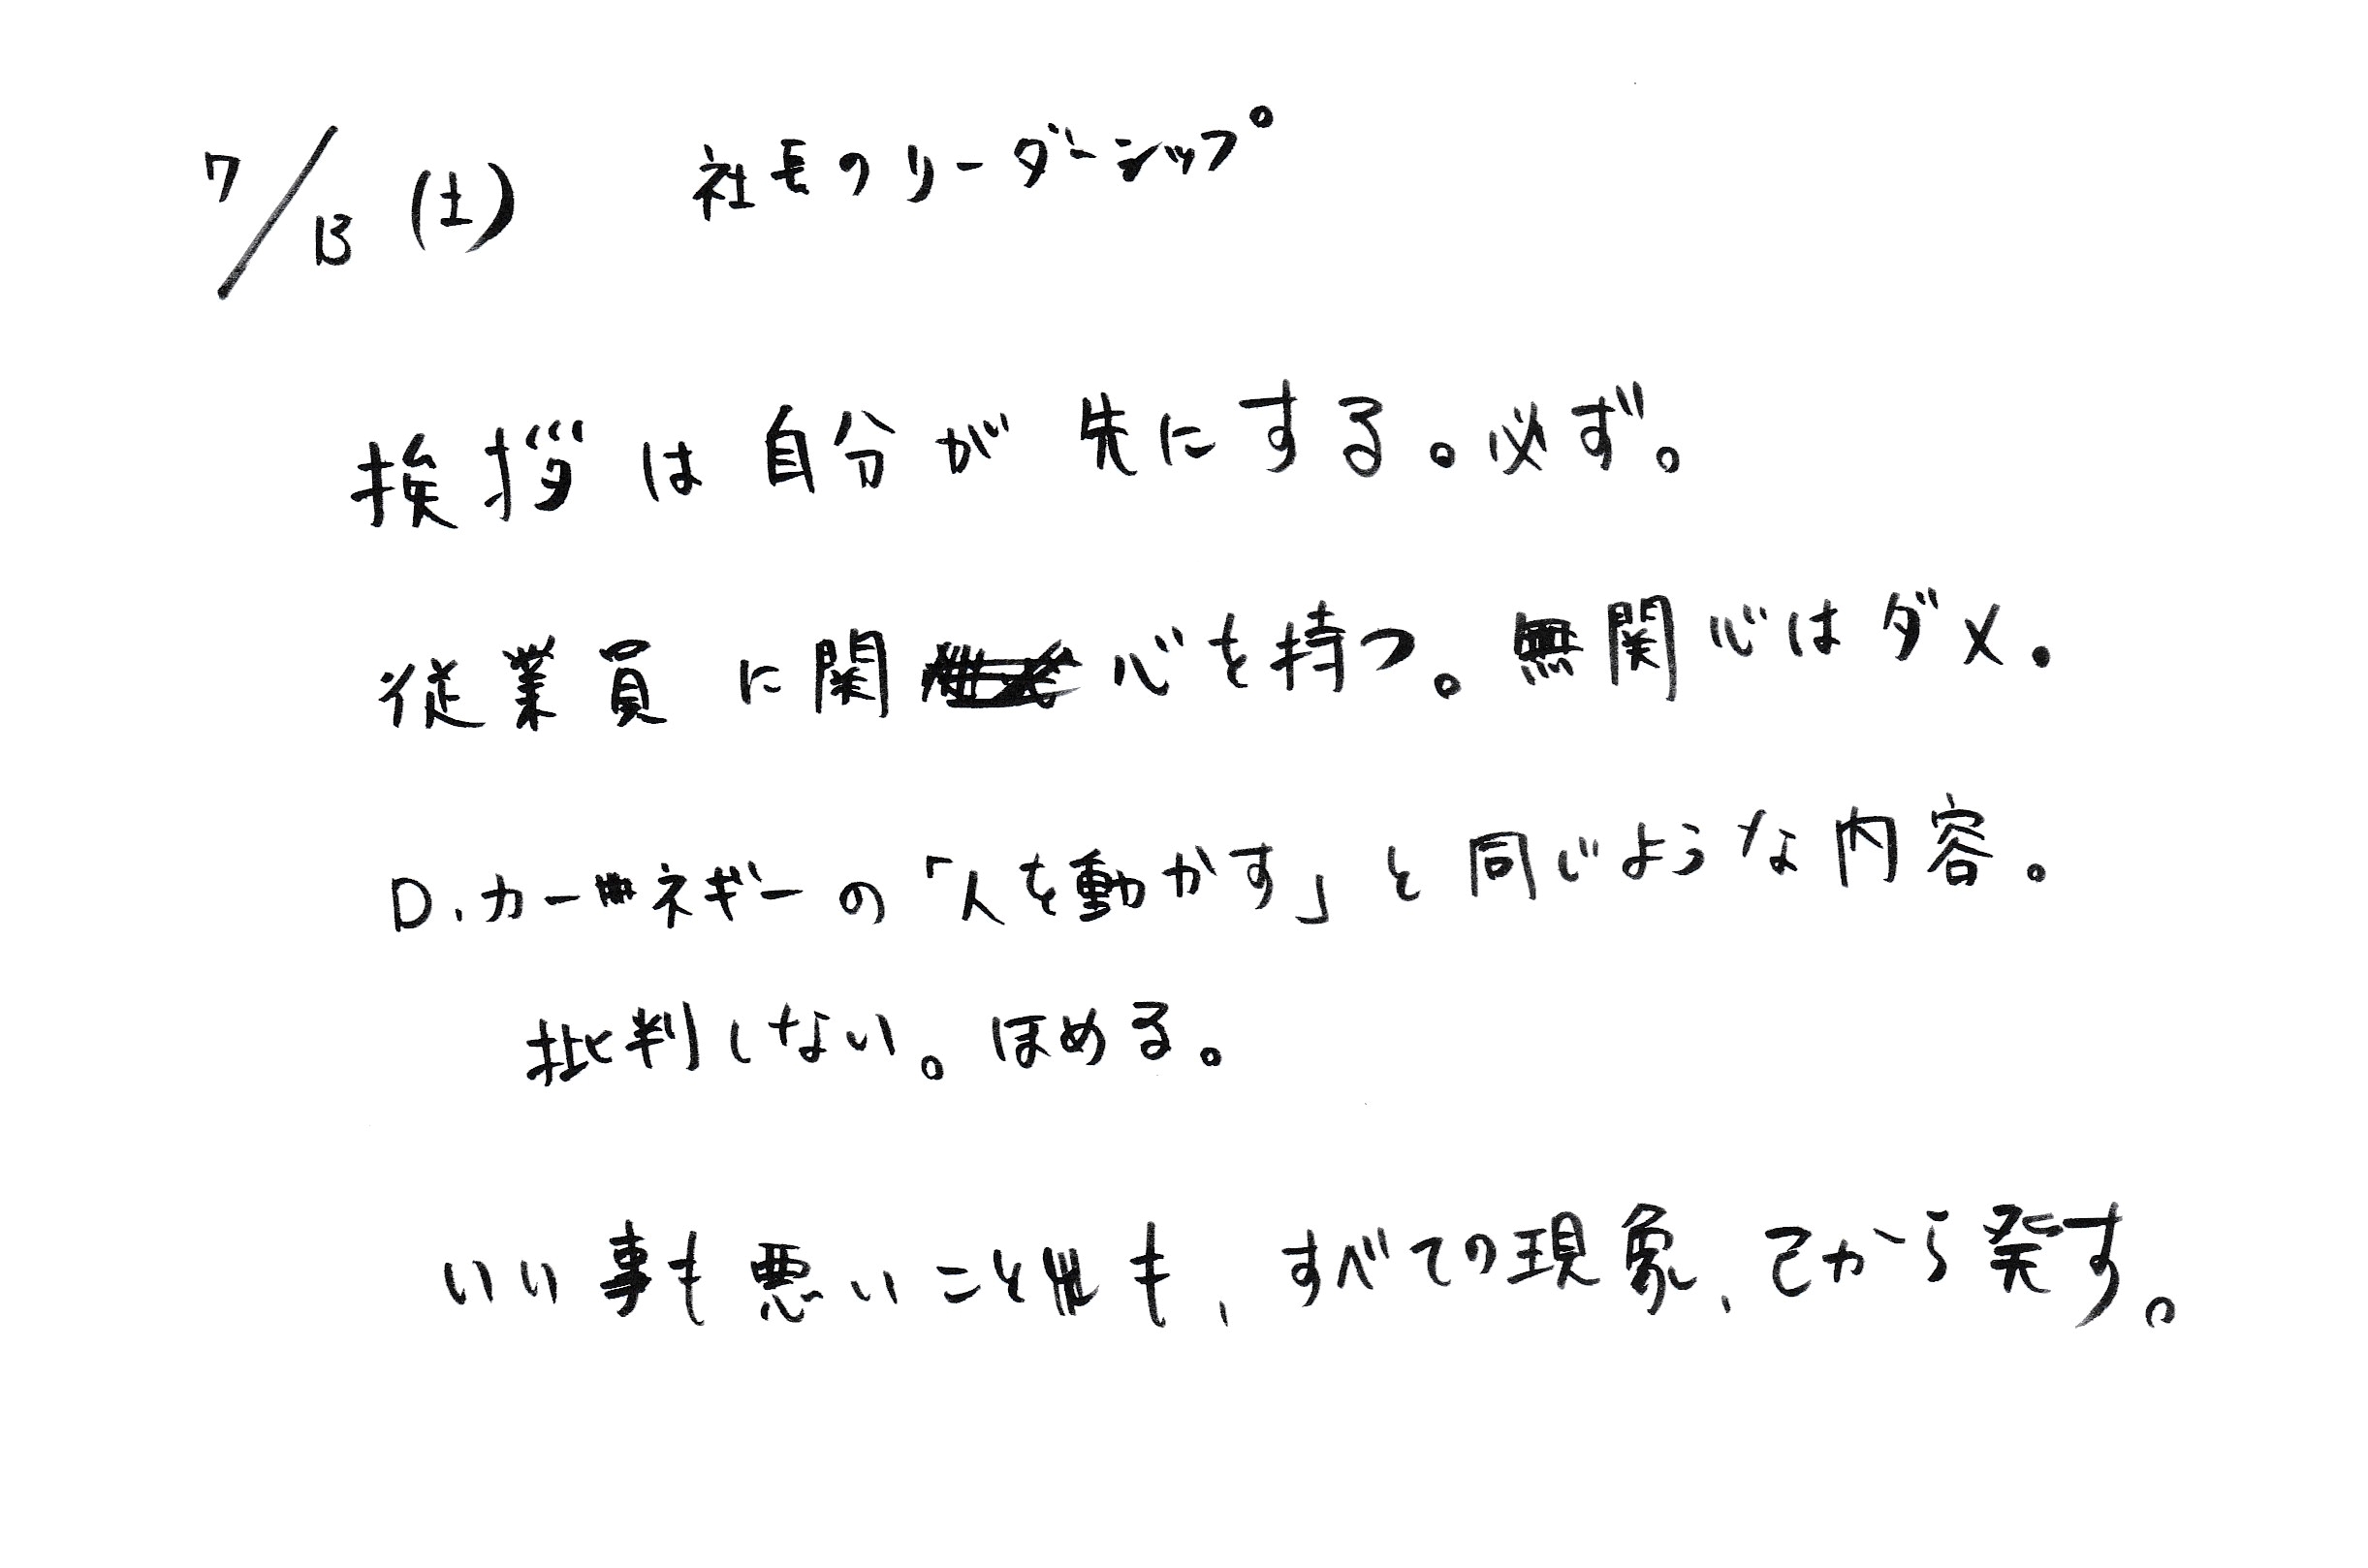 7/13 (土) 社長のリーダーシップ
挨拶は自分が先にする。必ず。
従業員に関心を持つ。無関心はダメ.
D.カーネギーの「人を動かす」と同じような内容。
批判しない。ほめる。
いい事も悪いことも、すべての現象、己から発す。